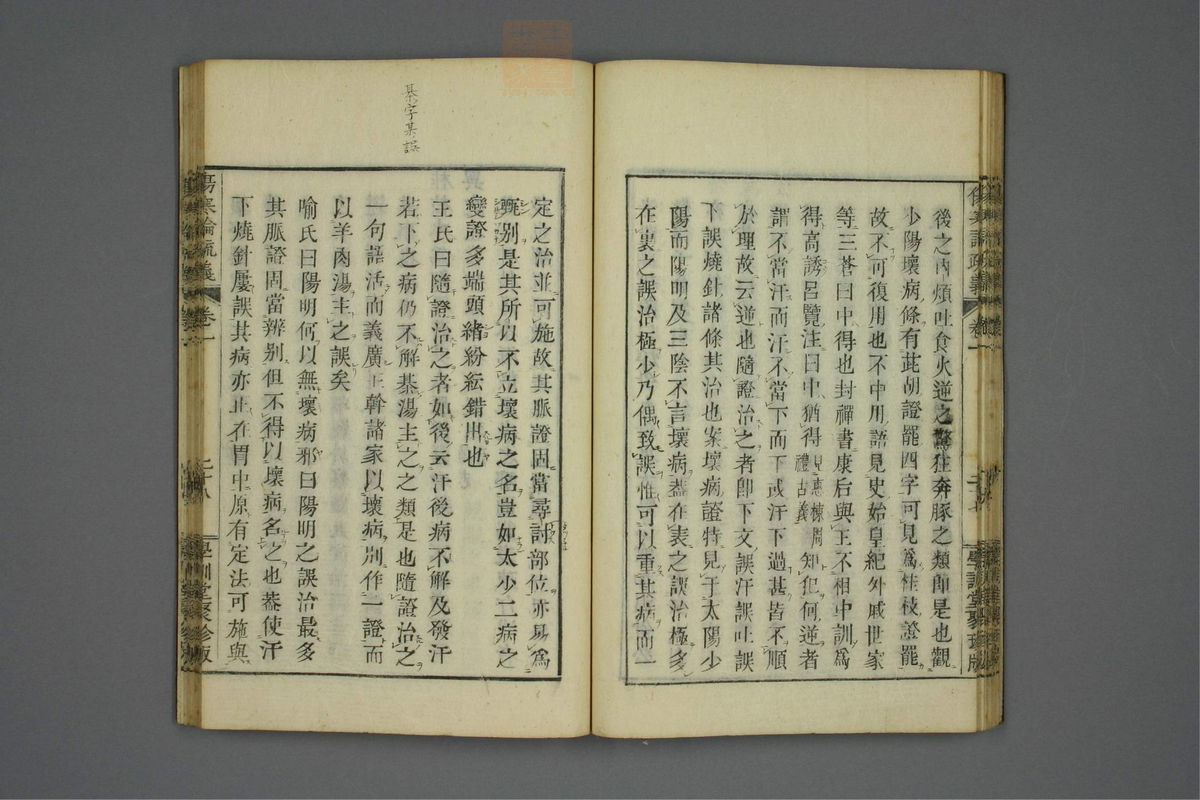 後之內煩吐食火逆之驚狂奔豚之類卽是也觀
少陽壞病條有茈胡證罷四字可見爲桂枝證罷
故不可復用也不中用語見史始皇紀外戚世家
等三蒼曰中得也封禪書康后與王不相中訓爲
得高誘呂覽注曰中猶得見惠棟周禮古義知犯何逆者
謂不當汗而汗不當下而下或汗下過甚皆不順
於理故云逆也隨證治之者卽下文誤汗誤吐誤
下誤燒針諸條其治也案壞病證特見于太陽少
陽而陽明及三陰不言壞病葢在表之誤治極多
在裏之誤治極少乃偶致誤惟可以重其病而一
傷寒論疏義
卷一
學訓堂聚珍版
定之治並可施故其脈證固當尋討部位亦易爲
甄别是其所以不立壞病之名豈如太少二病之
變證多端頭緒紛紜錯出也
王氏曰隨證治之者如後云汗後病不解及發汗
若下之病仍不解某湯主之之類是也隨證治之
一句語活而義廣王幹諸家以壞病別作一證而
以羊肉湯主之誤矣
喻氏曰陽明何以無壞病邪曰陽明之誤治最多
其脈證固當辨别但不得以壞病名之也葢使汗
下燒針屢誤其病亦止在胃中原有定法可施與
傷寒論疏義
卷一
二十八
學訓堂聚珍版